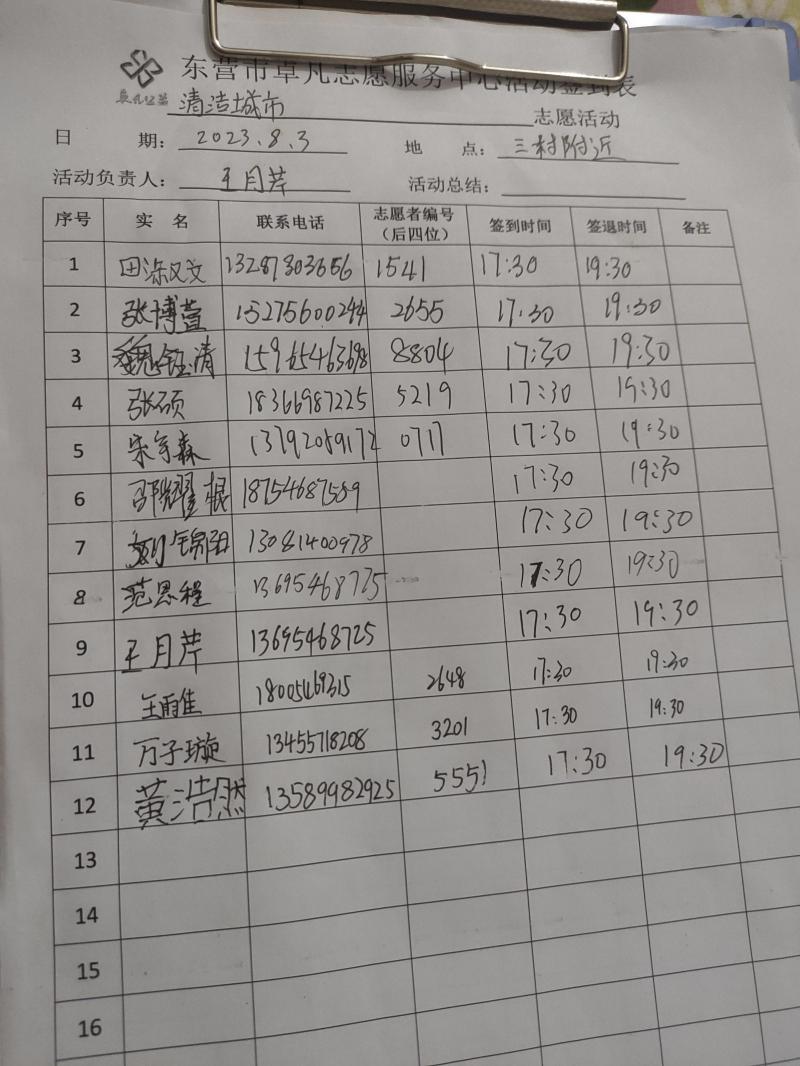 东营市卓凡志愿服务中心活动签到表
卓凡公益 清洁城市 志愿活动
日 期: 2023.8.3 地 点: 三村附近
活动负责人: 王月芹 活动总结:
序号 实 名 联系电话 志愿者编号（后四位） 签到时间 签退时间 备注
1 13287803656 1541 17:30 19:30
2 张博萱 15275600244 2655 17:30 19:30
3 魏钰清 15965463698 8804 17:30 19:30
4 张硕 18366987225 5219 17:30 19:30
5 13792089172 0717 17:30 19:30
6 邵耀棍 18754687589 17:30 19:30
7 刘锦阳 13081400978 17:30 19:30
8 范恩程 13695468725 17:30 19:30
9 王月芹 13695468725 17:30 19:30
10 王雨佳 18005469315 2648 17:30 19:30
11 万子璇 13455718208 3201 17:30 19:30
12 黄浩然 13589982925 5551 17:30 19:30
13
14
15
16